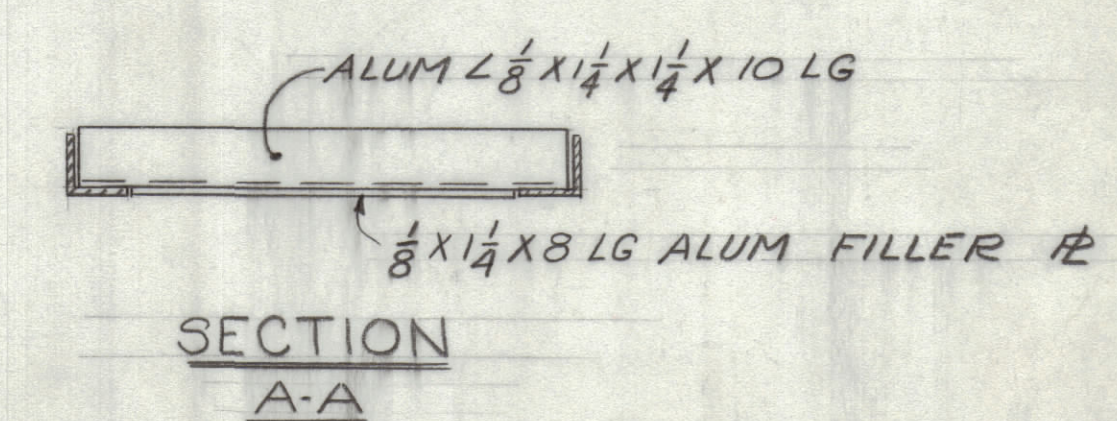 ALUM ∠ 1/8 X 1 1/4 X 1 1/4 X 10 LG
1/8 X 1 1/4 X 8 LG ALUM FILLER ℄
SECTION
A-A